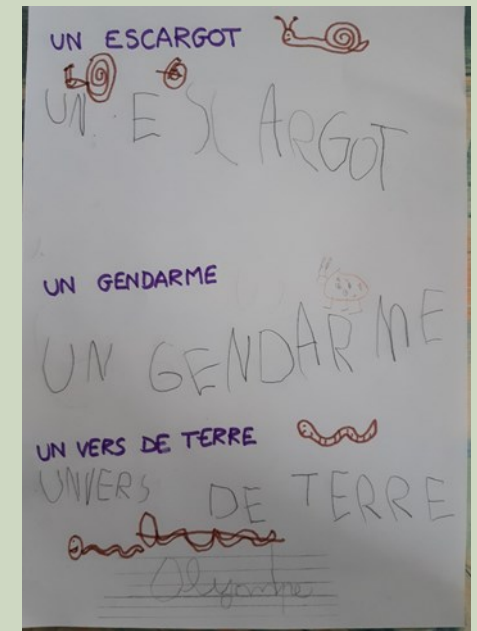 UN ESCARGOT
UN ESCARGOT
UN GENDARME
UN GENDARME
UN VERS DE TERRE
UN VERS DE TERRE
Olympe